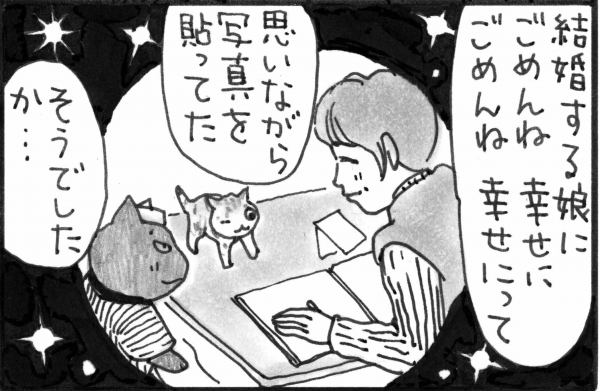 結婚する娘に
ごめんね 幸せに
ごめんね 幸せにって
思いながら
写真を
貼ってた
そうでした
か…